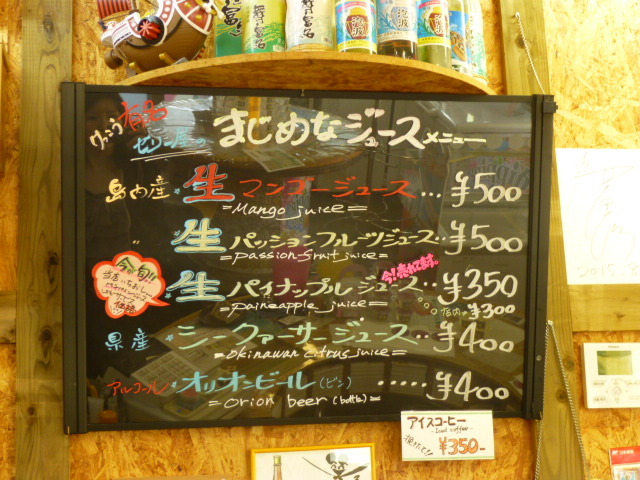 泡波
泡波
けっこう有名
まじめなジュースメニュー
島内産 生マンゴージュース…¥500
=Mango juice=
〃 生パッションフルーツジュース..¥500
=passion-fruit juice=
今が旬!!
今!売れてます。
生パイナップルジュース…¥350
=paineapple juice=
店内¥300
県産 シークァーサージュース…¥400
=Okinawan citrus juice=
アルコール オリオンビール(ビン)……¥400
=orion beer (bottle)=
アイスコーヒー
-Iced coffee-
¥350-